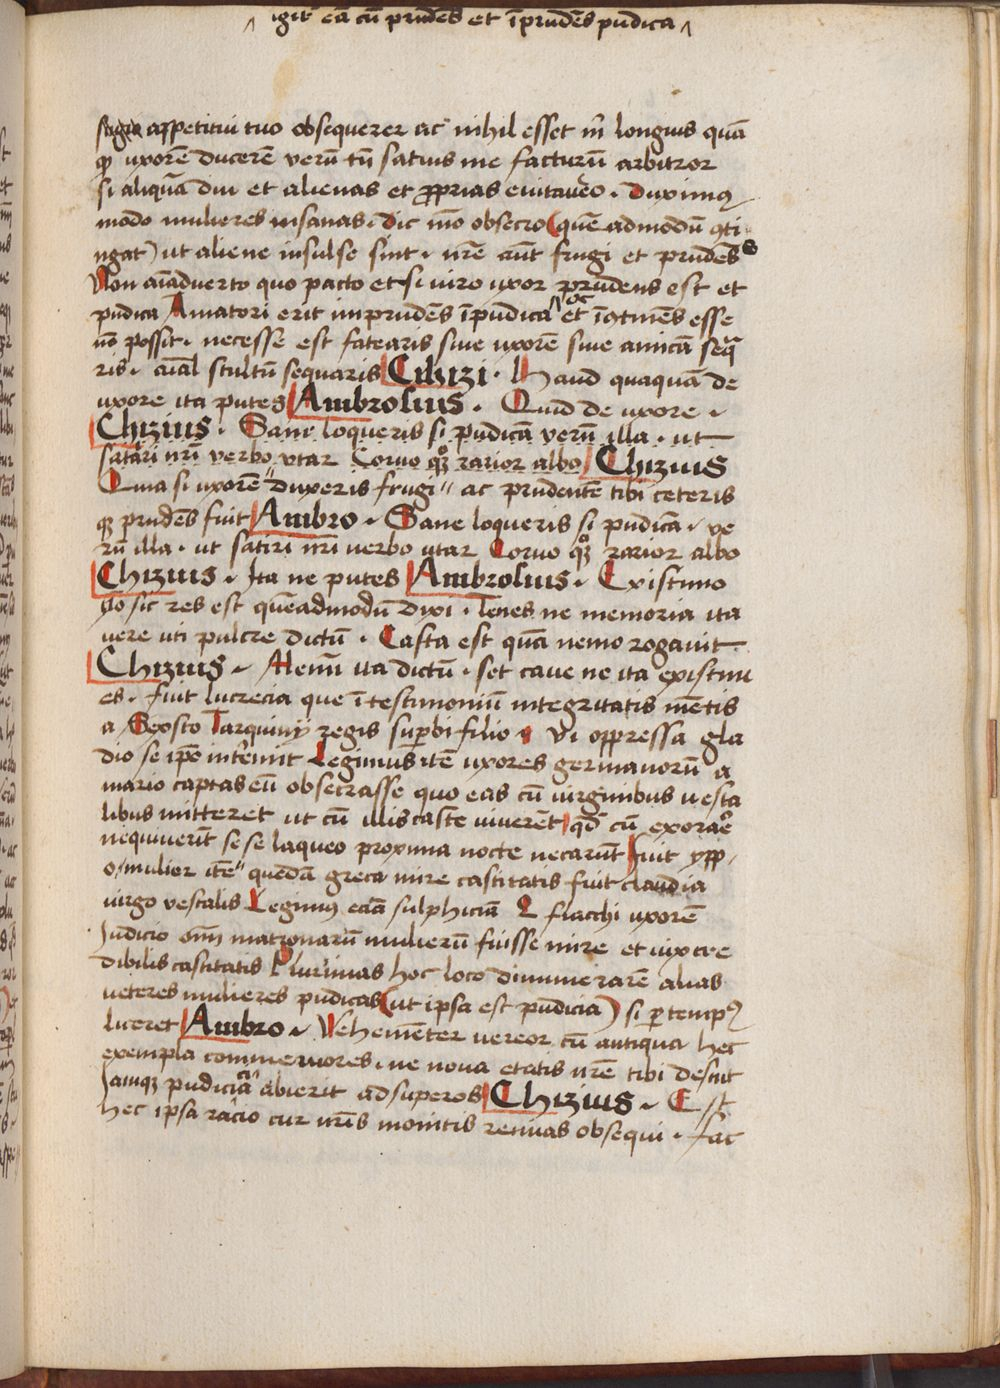 igit᷑ eā cū prudēs et īprudēs pudica
appetitui tuo obsequerer ac nihil esset m̄ longius quā
ꝙ uxorē ducerē verū tn̄ satius me facturū arbitror
si aliquādiu et alienas et ꝓprias euitauero . Duximꝰ
modo mulieres insanas . dic mō obsecro (quēadmodū ꝯti
ngat) ut aliene insulse sint . nr̄e aūt frugi et prudēs
Non aīaduerto quo pacto et si uiro uxor prudens est et
pudica Amatori erit imprudēs īpudica et īꝯtinēs esse
nō possit . necesse est fatearis siue uxorē siue amicā seq̄
ris . stultū sequaris Chizi . Haud quaquā de
uxore ita putes Ambrosius . Quid de uxore .
Chizius . Sane loqueris si pudicā verū illa . ut
satiri nr̄i verbo vtar Coruo qͦꝫ rarior albo Chizius
Quia si uxorē duxeris frugi ac prudentē tibi ceteris
qꝫ prudēs fuit Ambro . Sane loqueris si pudicā . ve
rū illa . ut satiri nr̄i verbo utar Coruo qͦꝫ rarior albo
Chizius . Ita ne putes Ambrosius . Existimo
sic res est quēadmodū dixi . Tenes ne memoria ita
vere uti pulcre dictū . Casta est quā nemo rogauit
Chizius . Memī ita dictū . set caue ne ita existim
es . fuit lucrecia que ī testimoniū integritatis mētis
a Sexsto Tarquinij regis suꝑbi filio vi oppressa gla
dio se ip̄e intēmit Legimus itē uxores germanorū a
mario captas eū obsecrasse quo eas cū uirginibus uesta
libus mitteret ut cū illis caste uiuerēt qd̄ cū exorare
nequiuerūt sese laqueo proxima nocte necarūt fuit ypp
o mulier itē quedā greca mire castitatis fuit claudia
uirgo vestalis Legimꝰ eciā sulphiciā Q flacchi uxorē
Iudicio om̄i matronarū mulierū fuisse mire et uix cre
dibilis castitatis Plurimas hoc loco dinumerarē alias
ueteres mulieres pudicas (ut ipsa est pudicia) si ꝑ tempꝰ
liceret Ambro . Vehemēter uereor cū antiqua hec
exempla commemores . ne noua etatis nr̄e tibi desint
Iamqꝫ pudicia abierit ad superos Chizius . Est
hec ipsa racio cur nr̄is monitis renuas obsequi . fac